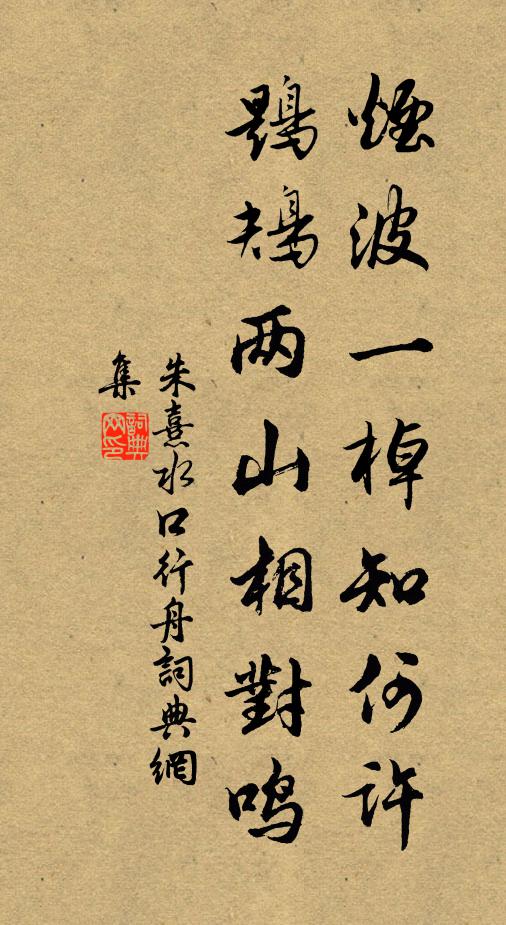 煙波一棹知何许
鶗鴂两山相對鸣
朱熹水口行舟詞典網
集
詞典
网印